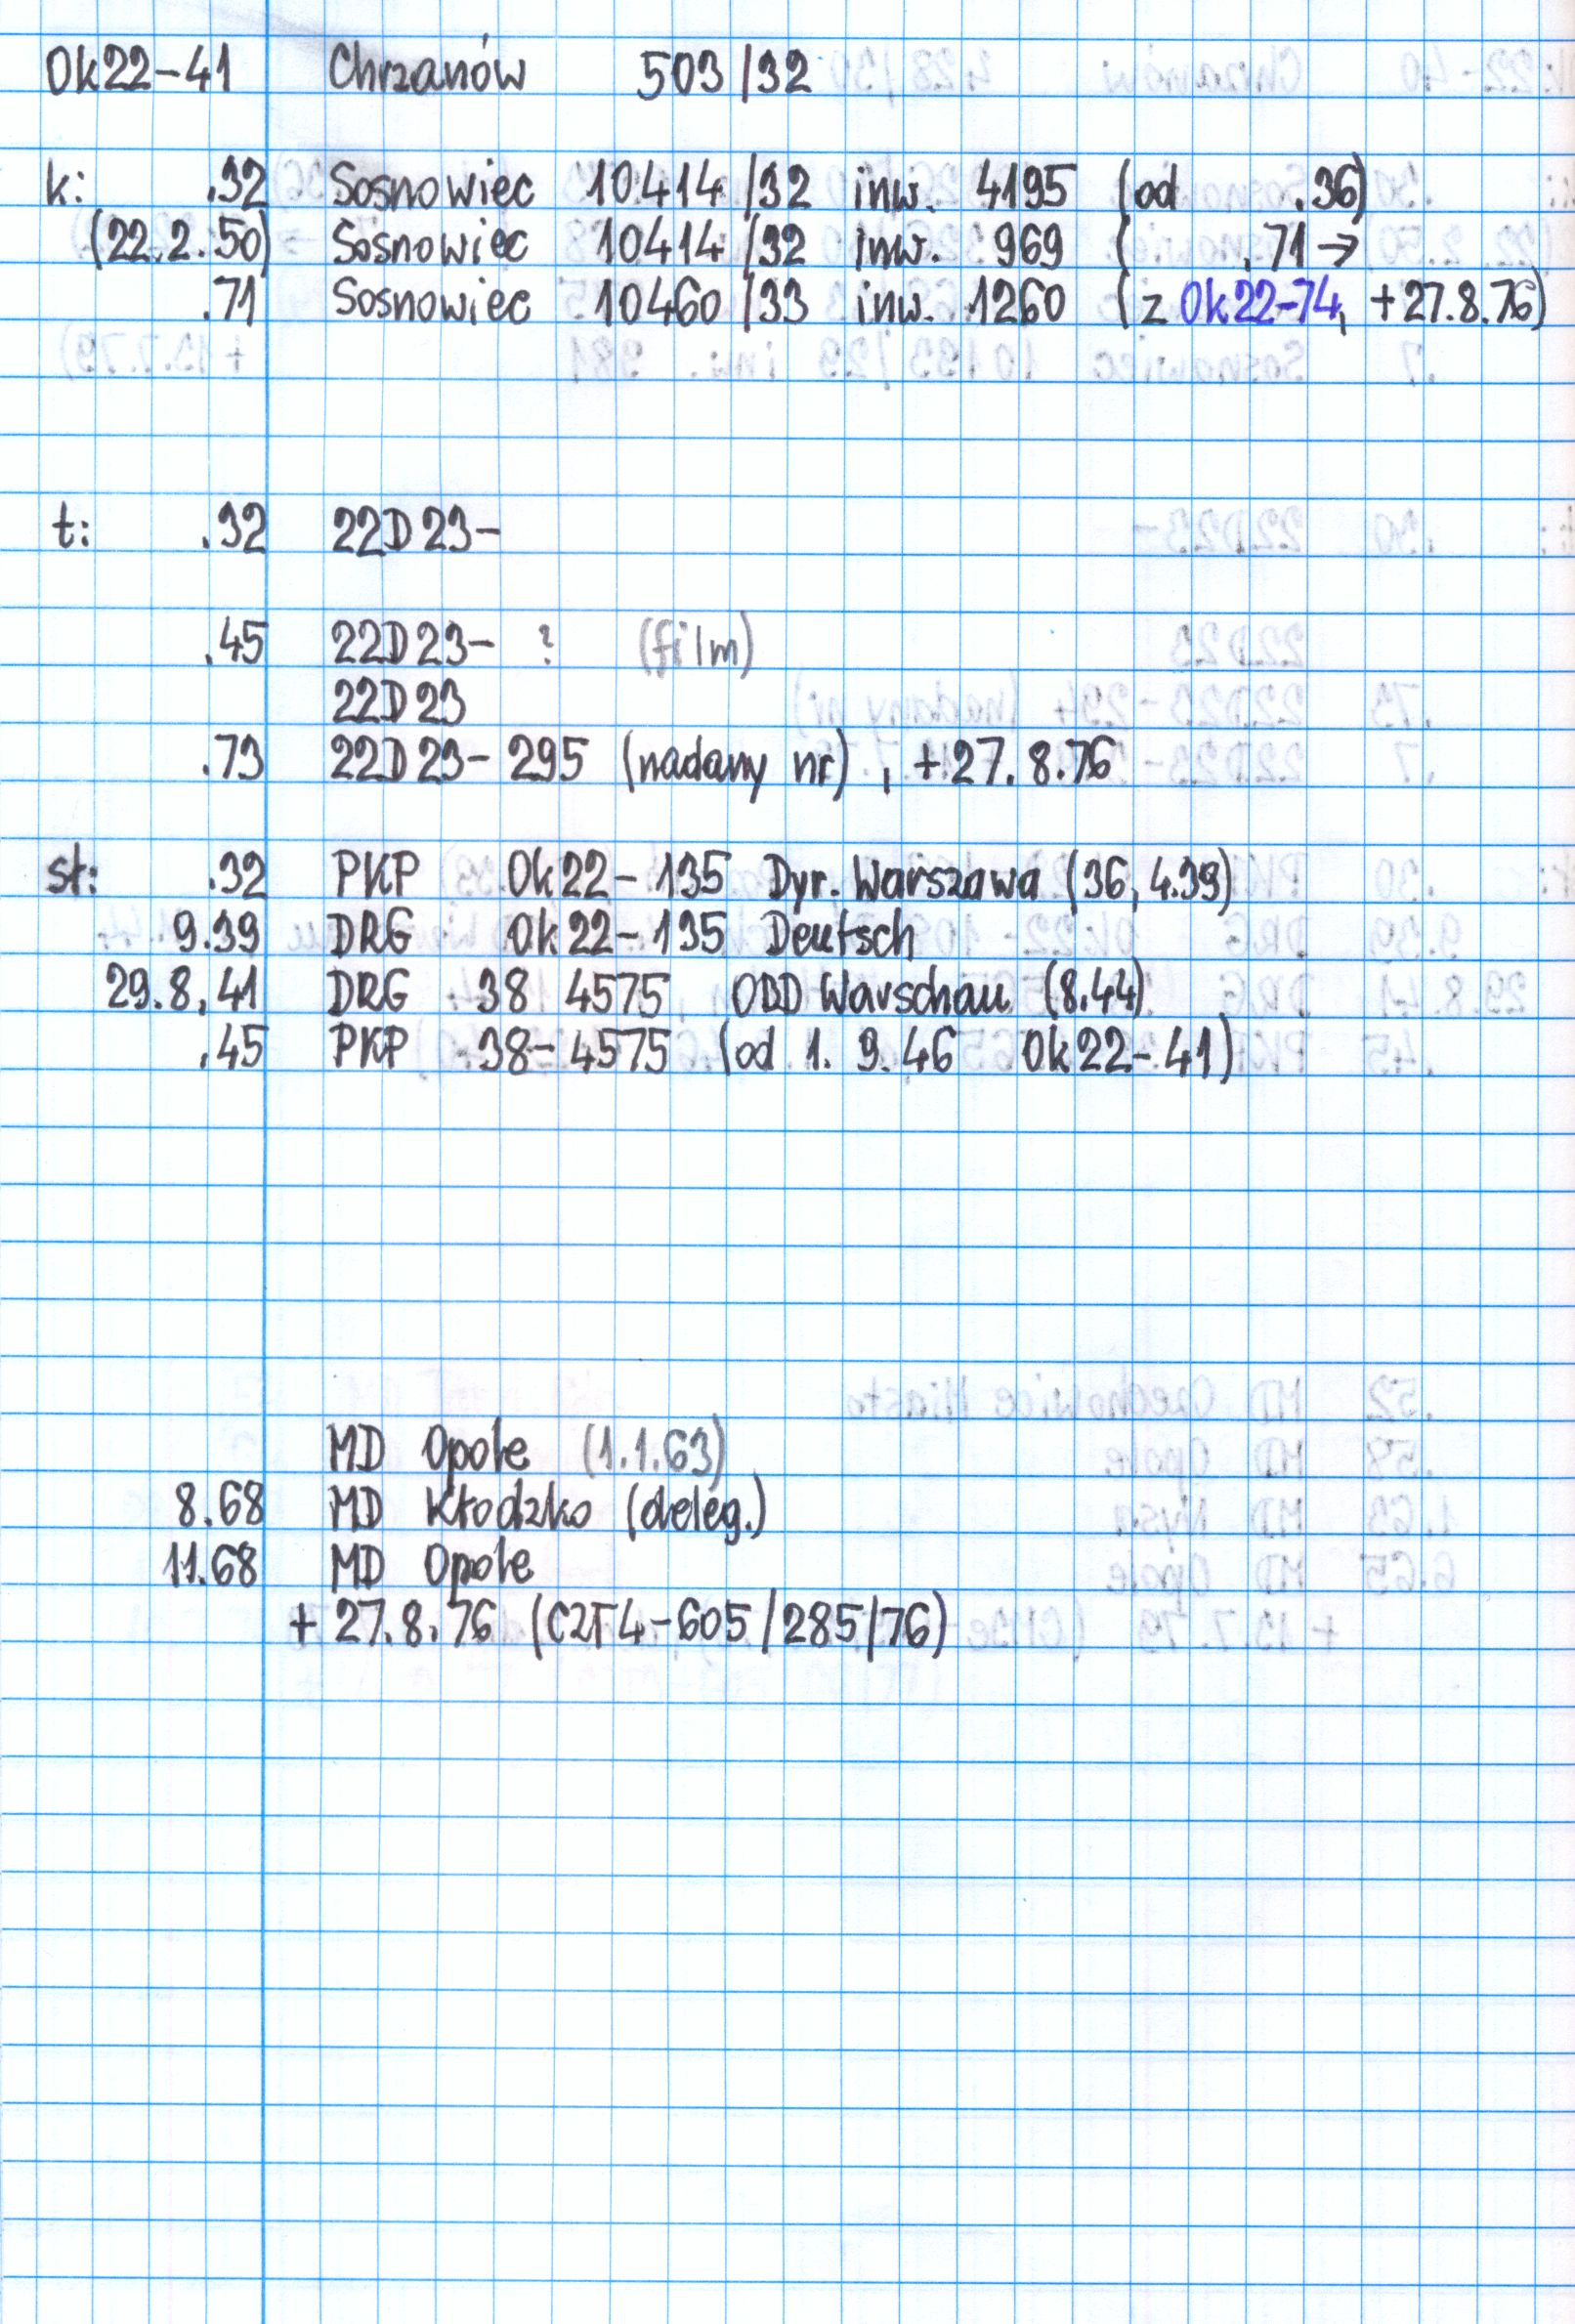 Ok22-41 Chrzanów 503/32
k: .32 Sosnowiec 10414/32 inw. 4195 (od .36)
(22.2.50) Sosnowiec 10414/32 inw. 969 ( .71→
.71 Sosnowiec 10460/33 inw. 1260 (z Ok22-74, +27.8.76)
t: .32 22D23-
.45 22D23- ? (film)
22D23
.73 22D23-295 (nadany nr), +27.8.76
st: .32 PKP Ok22-135 Dyr. Warszawa (36, 4.39)
9.39 DRG Ok22-135 Deutsch
29.8.41 DRG 38 4575 OBD Warschau (8.44)
.45 PKP 38-4575 (od 1.9.46 Ok22-41)
MD Opole (1.1.63)
8.68 MD Kłodzko (deleg.)
11.68 MD Opole
+ 27.8.76 (C2T4-605/285/76)